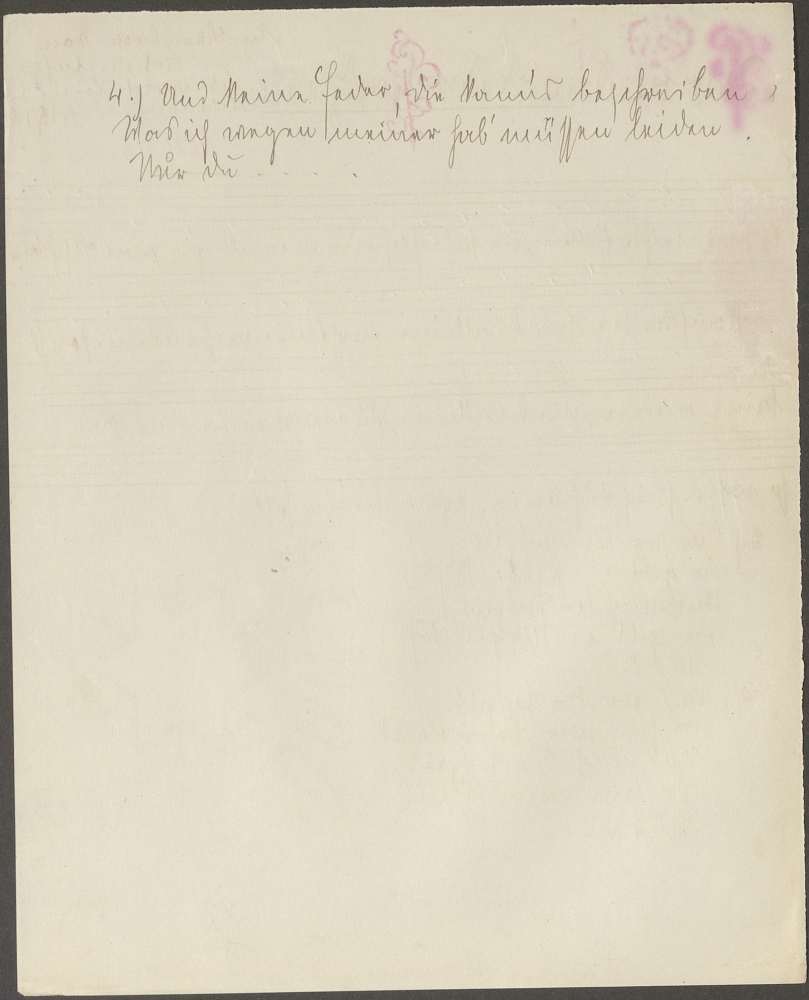 4.) Und keine Feder, die kann's beschreiben
Was ich wegen meiner hab' müssen leiden.
Nur du . . . . .